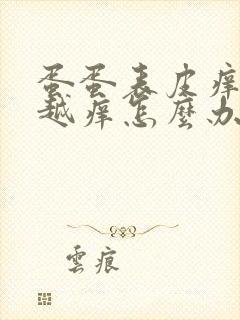 蛋蛋表皮痒
越痒怎麼办
雲痕